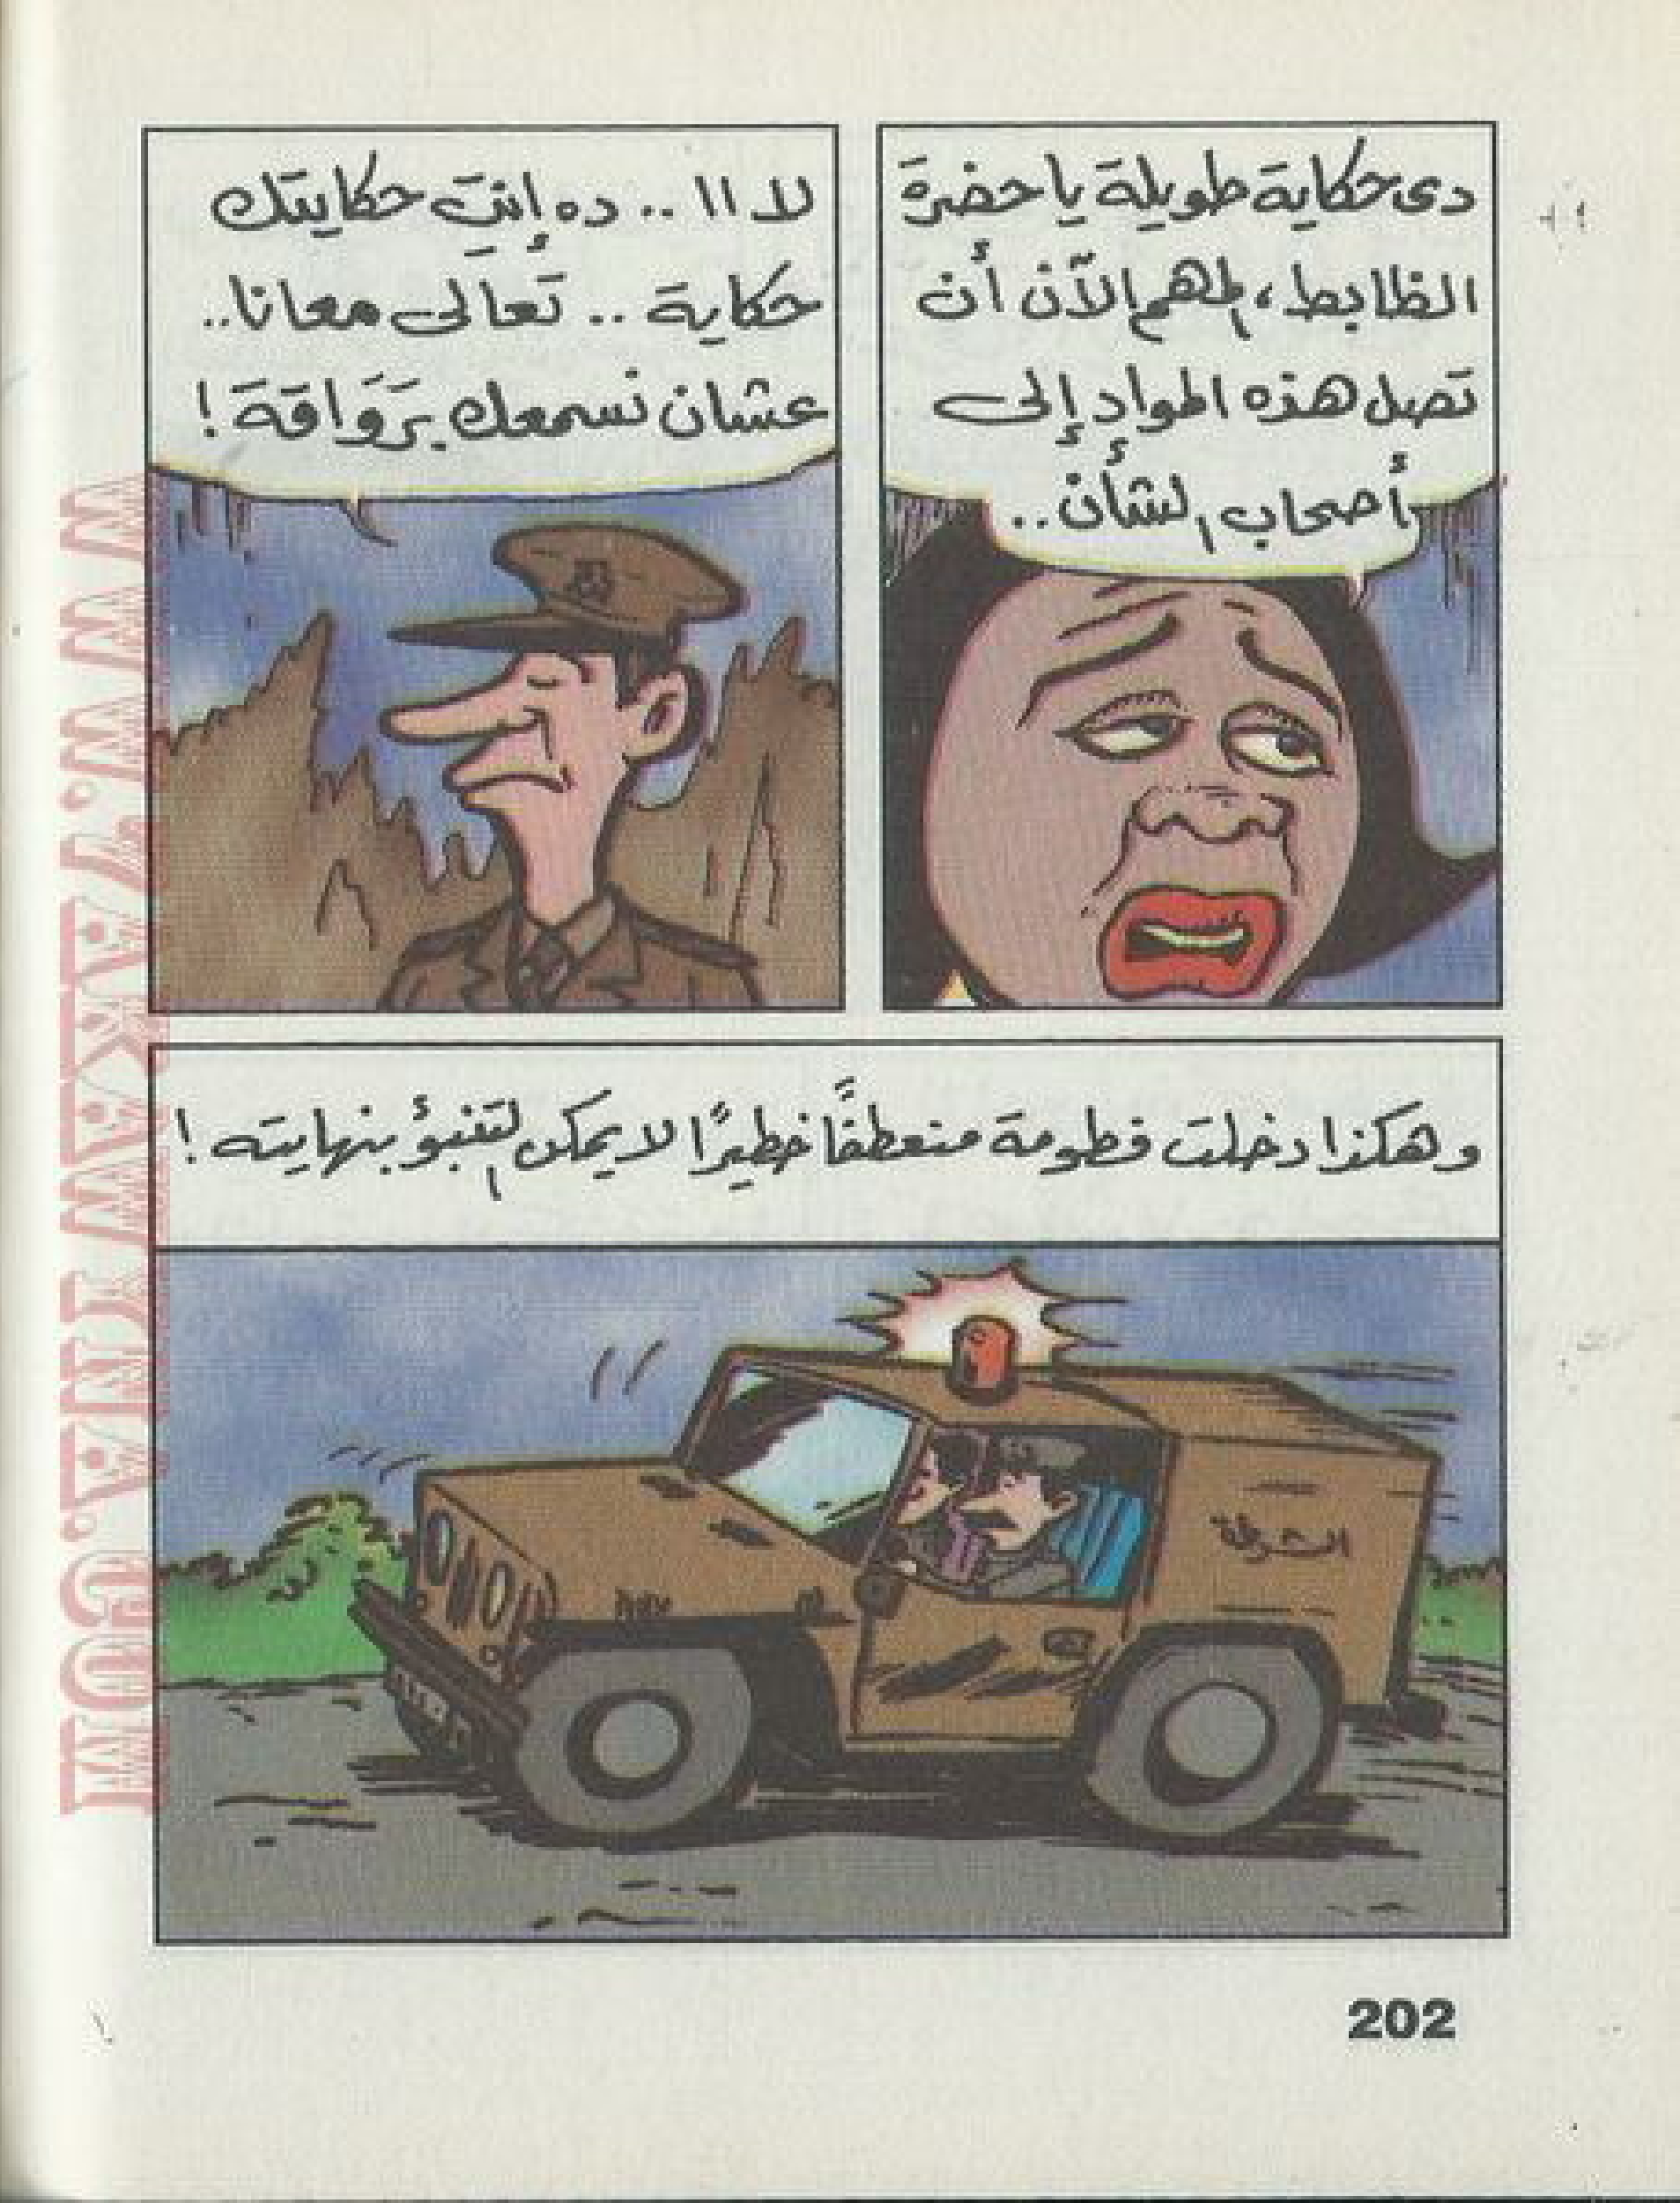 دى حكاية طويلة يا حضرة
الظابط، المهم الآن أن
تصل هذه المواد إلى
أصحاب الشأن..
لا اا .. ده إنتِ حكايتك
حكاية .. تعالى معانا..
عشان نسمعك بِرَوَاقة !
وهكذا دخلت فطومة منعطفًا خطيرًا لا يمكن التنبؤ بنهايته !
الشرطة
202